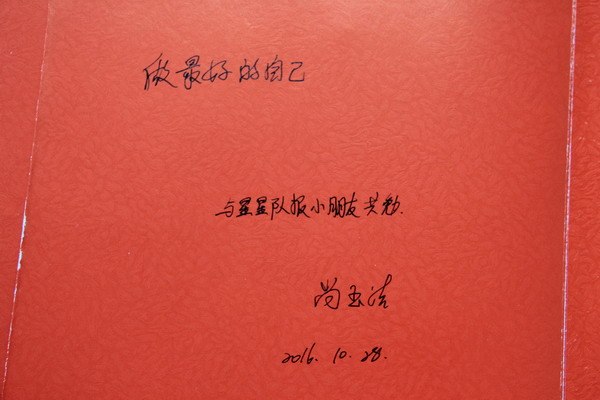 做最好的自己
与星星队报小朋友共勉.
尚玉洁
2016. 10. 28.